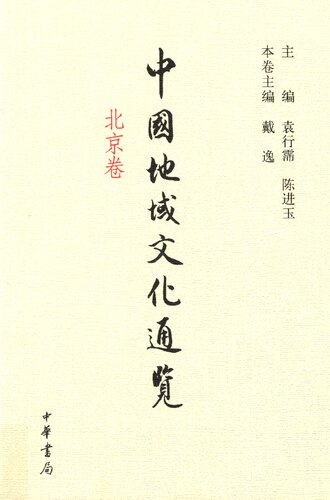 主 编 袁行霈 陈进玉
本卷主编 戴 逸
中國地域文化通覽
北京卷
中華書局